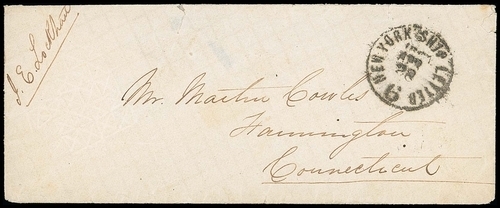 J. E. Lockhart
NEW YORK SHIP LETTER
9
Mr. Martin Cowles
Farmington
Connecticut